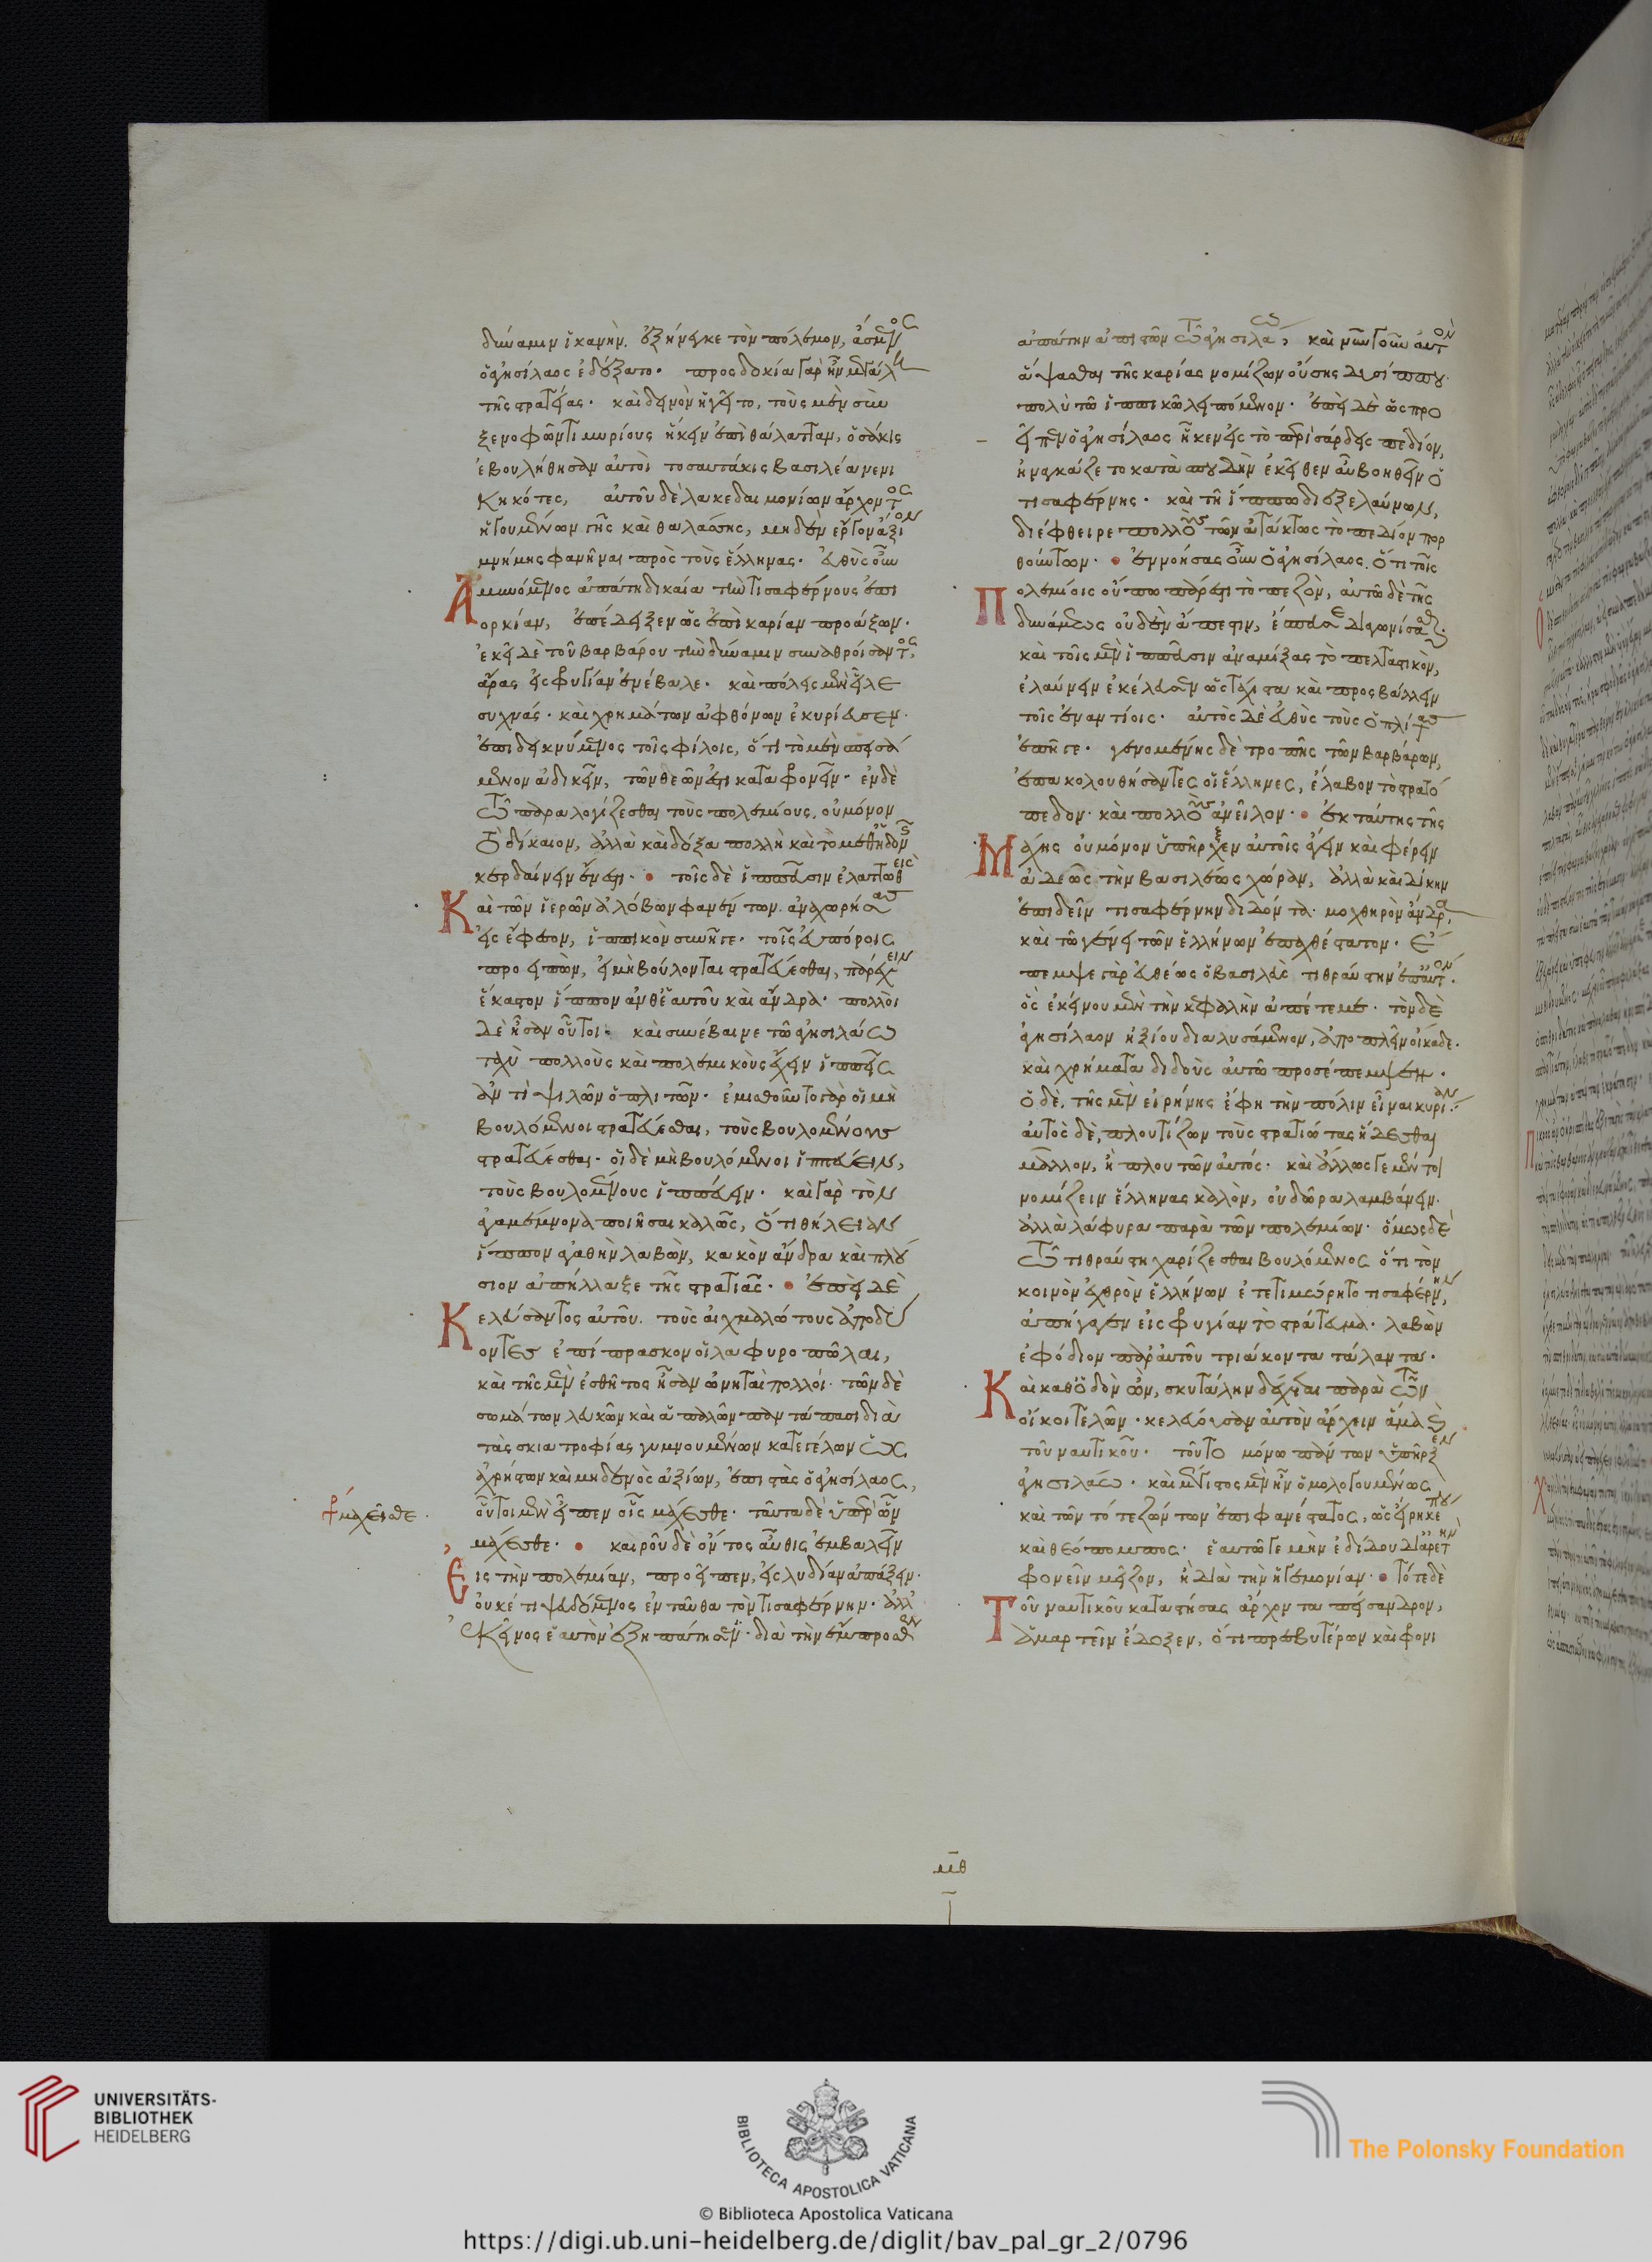 δύναμιν ἱκανὴν. ἐξήνεγκε τὸν πόλεμον, ἄσμενος
ὁ ἀγησίλαος ἐδέξατο. προσδοκία γὰρ ἦν μεγάλη
τῆς στρατείας. καὶ δεινὸν ἡγεῖτο, τοὺς μὲν σὺν
ξενοφῶντι μυρίους ἥκειν ἐπὶ θάλατταν, ὁσάκις
ἐβουλήθησαν αὐτοὶ τοσαυτάκις βασιλέα νενι
κηκότες, αὐτοῦ δὲ λακεδαιμονίων ἄρχοντος
ἡγουμένων γῆς καὶ θαλάσσης, μηδὲν ἔργον ἄξιον
μνήμης φανῆναι πρὸς τοὺς ἕλληνας. εὐθὺς οὖν
Ἀμυνόμενος ἀπάτῃ δικαίᾳ τὴν τισαφέρνους ἐπι
ορκίαν, ἐπέδειξεν ὡς ἐπὶ καρίαν προάξων.
ἐκεῖ δὲ τοῦ βαρβάρου τὴν δύναμιν συναθροίσαντος,
ἄρας εἰς φρυγίαν ἐνέβαλε. καὶ πόλεις μὲν εἷλε
συχνάς. καὶ χρημάτων ἀφθόνων ἐκυρίευσεν.
ἐπιδεικνύμενος τοῖς φίλοις, ὅτι τὸ μὲν σπεισά
μενον ἀδικεῖν, τῶν θεῶν ἐστι καταφρονεῖν. ἐν δὲ
τῶ παραλογίζεσθαι τοὺς πολεμίους, οὐ μόνον
τὸ δίκαιον, ἀλλὰ καὶ δόξα πολλὴ καὶ τὸ μεθ' ἡδονῆς
κερδαίνειν ἔνεστι. τοῖς δὲ ἱππεῦσιν ἐλαττωθεὶς
Καὶ τῶν ἱερῶν ἀλόβων φανέντων. ἀναχωρήσας
εἰς ἔφεσον, ἱππικὸν συνῆγε. τοῖς εὐπόροις
προειπὼν, εἰ μὴ βούλονται στρατεύεσθαι, παρασχεῖν
ἕκαστον ἵππον ἀνθ' ἑαυτοῦ καὶ ἄνδρα. πολλοὶ
δὲ ἦσαν οὗτοι. καὶ συνέβαινε τῶ ἀγησιλάω
ταχὺ πολλοὺς καὶ πολεμικοὺς ἔχειν ἱππεῖς
ἀντὶ ψιλῶν ὁπλιτῶν. ἐμισθοῦντο γὰρ οἱ μὴ
βουλόμενοι στρατεύεσθαι, τοὺς βουλομένους
στρατεύεσθαι. οἱ δὲ μὴ βουλόμενοι ἱππεύειν,
τοὺς βουλομένους ἱππεύειν. καὶ γὰρ τὸν
ἀγαμέμνονα ποιῆσαι καλῶς, ὅτι θήλειαν
ἵππον ἀγαθὴν λαβὼν, κακὸν ἄνδρα καὶ πλού
σιον ἀπήλλαξε τῆς στρατιᾶς. ἐπεὶ δὲ
Κελεύσαντος αὐτοῦ. τοὺς αἰχμαλώτους ἀποδύ
οντες ἐπίπρασκον οἱ λαφυροπῶλαι,
καὶ τῆς μὲν ἐσθῆτος ἦσαν ὠνηταὶ πολλοί. τῶν δὲ
σωμάτων λευκῶν καὶ ἁπαλῶν παντάπασι διὰ
τὰς σκιατροφίας γυμνουμένων κατεγέλων ὡς
ἀχρήστων καὶ μηδενὸς ἀξίων, ἐπιστὰς ὁ ἀγησίλαος,
οὗτοι μὲν εἶπεν οἷς μάχεσθε. ταῦτα δὲ ὑπὲρ ὧν
μάχεσθε. καιροῦ δὲ ὄντος αὖθις ἐμβαλεῖν
Εἰς τὴν πολεμίαν, προεῖπεν, εἰς λυδίαν ἀπάξειν.
οὐκέτι ψευδόμενος ἐνταῦθα τὸν τισαφέρνην. ἀλλ'
ἐκεῖνος ἑαυτὸν ἐξηπάτησεν. διὰ τὴν ἔμπροσθεν
μάχεσθε.
ἀπάτην ἀπιστῶν τῶ ἀγησιλάω, καὶ νῦν γοῦν αὐτὸν
ἅψασθαι τῆς καρίας νομίζων οὔσης δυσίππου.
πολὺ τῶ ἱππικῶ λειπόμενον. ἐπεὶ δὲ ὡς προ
εῖπεν ὁ ἀγησίλαος ἧκεν εἰς τὸ περὶ σάρδεις πεδίον,
ἠναγκάζετο κατὰ σπουδὴν ἐκεῖθεν αὖ βοηθεῖν ὁ
τισαφέρνης. καὶ τῇ ἵππω διεξελαύνων,
διέφθειρε πολλοὺς τῶν ἀτάκτως τὸ πεδίον πορ
θούντων. ἐννοήσας οὖν ὁ ἀγησίλαος. ὅτι τοῖς
Πολεμίοις οὔπω πάρεστι τὸ πεζὸν, αὐτῶ δὲ τῆς
δυνάμεως οὐδὲν ἄπεστιν, ἔσπευσε διαγωνίσασθαι.
καὶ τοῖς μὲν ἱππεῦσιν ἀναμίξας τὸ πελταστικὸν,
ἐλαύνειν ἐκέλευσεν ὡς τάχιστα καὶ προσβάλλειν
τοῖς ἐναντίοις. αὐτὸς δὲ εὐθὺς τοὺς ὁπλίτας
ἐπῆγε. γενομένης δὲ τροπῆς τῶν βαρβάρων,
ἐπακολουθήσαντες οἱ ἕλληνες, ἔλαβον τὸ στρατό
πεδον. καὶ πολλοὺς ἀνεῖλον. ἐκ ταύτης τῆς
Μάχης οὐ μόνον ὑπῆρξεν αὐτοῖς ἄγειν καὶ φέρειν
ἀδεῶς τὴν βασιλέως χώραν, ἀλλὰ καὶ δίκην
ἐπιδεῖν τισαφέρνην διδόντα. μοχθηρὸν ἄνδρα,
καὶ τῶ γένει τῶν ἑλλήνων ἐπαχθέστατον. ἔ
πεμψε γὰρ εὐθέως ὁ βασιλεὺς τιθραύστην ἐπ' αὐτόν.
ὃς ἐκείνου μὲν τὴν κεφαλὴν ἀπέτεμε. τὸν δὲ
ἀγησίλαον ἠξίου διαλυσάμενον, ἀποπλεῖν οἴκαδε.
καὶ χρήματα διδοὺς αὐτῶ προσέπεμψεν.
ὁ δὲ, τῆς μὲν εἰρήνης ἔφη τὴν πόλιν εἶναι κυρίαν.
αὐτὸς δὲ, πλουτίζων τοὺς στρατιώτας ἥδεσθαι
μᾶλλον, ἢ πλουτῶν αὐτός. καὶ ἄλλως γε μέντοι
νομίζειν ἕλληνας καλὸν, οὐ δῶρα λαμβάνειν.
ἀλλὰ λάφυρα παρὰ τῶν πολεμίων. ὅμως δὲ
τῶ τιθραύστῃ χαρίζεσθαι βουλόμενος ὅτι τὸν
κοινὸν ἐχθρὸν ἑλλήνων ἐτετιμώρητο τισαφέρνην,
ἀπήγαγεν εἰς φρυγίαν τὸ στράτευμα. λαβὼν
ἐφόδιον παρ' αὐτοῦ τριάκοντα τάλαντα.
Καὶ καθ' ὁδὸν ὢν, σκυτάλην δέχεται παρὰ τῶν
οἴκοι τελῶν. κελεύουσαν αὐτὸν ἄρχειν ἅμα καὶ
τοῦ ναυτικοῦ. τοῦτο μόνω πάντων ὑπῆρξεν
ἀγησιλάω. καὶ μέγιστος μὲν ἦν ὁμολογουμένως
καὶ τῶν τότε ζώντων ἐπιφανέστατος, ὡς εἴρηκέ που
καὶ θεόπομπος. ἑαυτῶ γε μὴν ἐδίδου δι' ἀρετὴν
φρονεῖν μεῖζον, ἢ διὰ τὴν ἡγεμονίαν. τότε δὲ
Τοῦ ναυτικοῦ καταστήσας ἄρχοντα πείσανδρον,
ἁμαρτεῖν ἔδοξεν, ὅτι πρεσβυτέρων καὶ φρονι
μθ
UNIVERSITÄTS-
BIBLIOTHEK
HEIDELBERG
BIBLIOTECA APOSTOLICA VATICANA
The Polonsky Foundation
© Biblioteca Apostolica Vaticana
https://digi.ub.uni-heidelberg.de/diglit/bav_pal_gr_2/0796